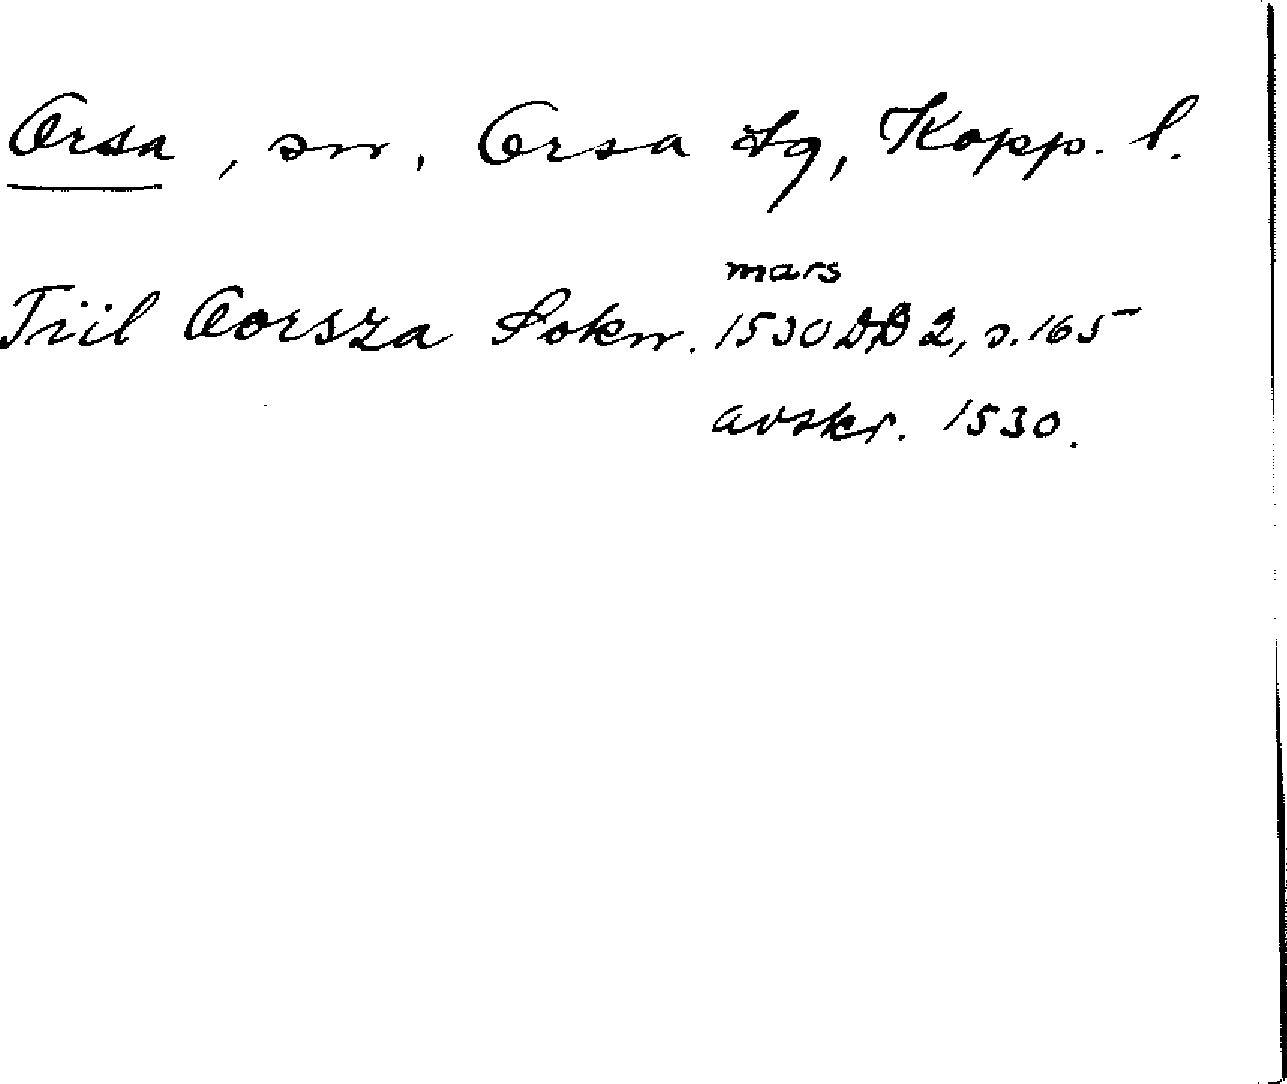 Orsa, sn, Orsa tg, Kopp. l.
mars
Tiil Oorsza Sokn. 1530 DD 2, s. 165
avskr. 1530.